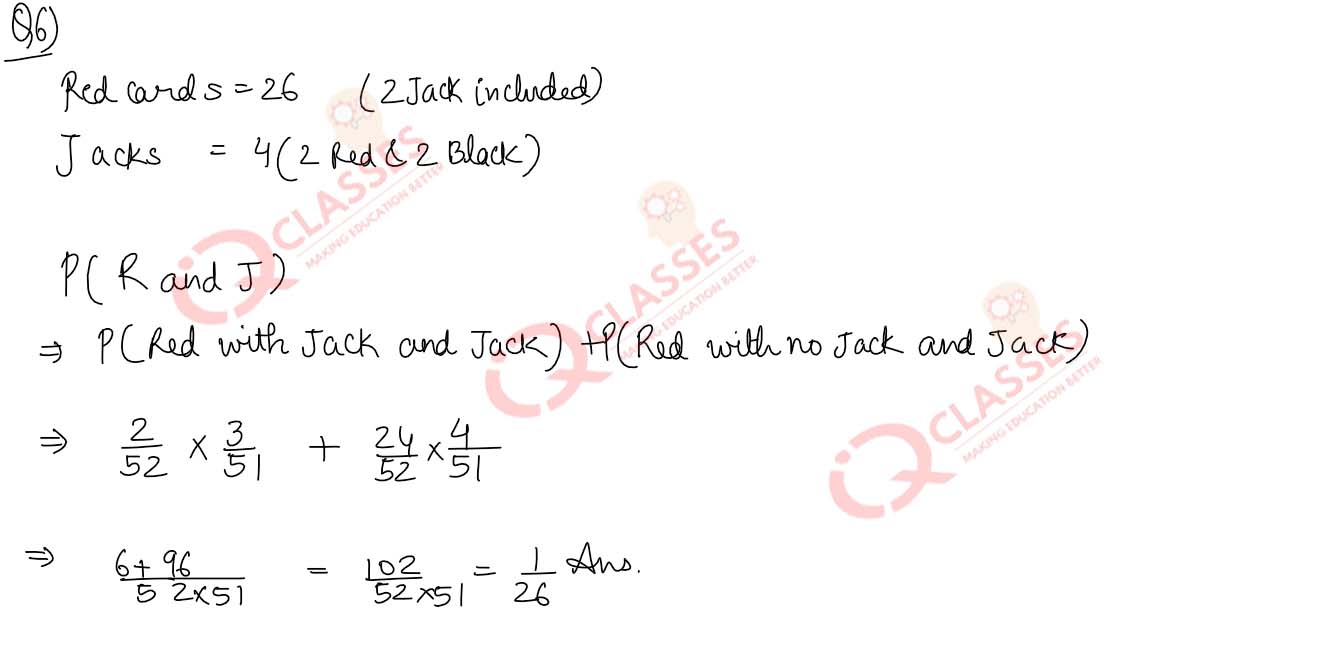 Q6)
Red cards = 26 (2 Jack included)
Jacks = 4 (2 Red & 2 Black)
P(R and J)
⇒ P(Red with Jack and Jack) + P(Red with no Jack and Jack)
⇒ 2/52 × 3/51 + 24/52 × 4/51
⇒ 6+96/52×51 = 102/52×51 = 1/26 Ans.
iQ CLASSES
MAKING EDUCATION BETTER
iQ CLASSES
MAKING EDUCATION BETTER
iQ CLASSES
MAKING EDUCATION BETTER